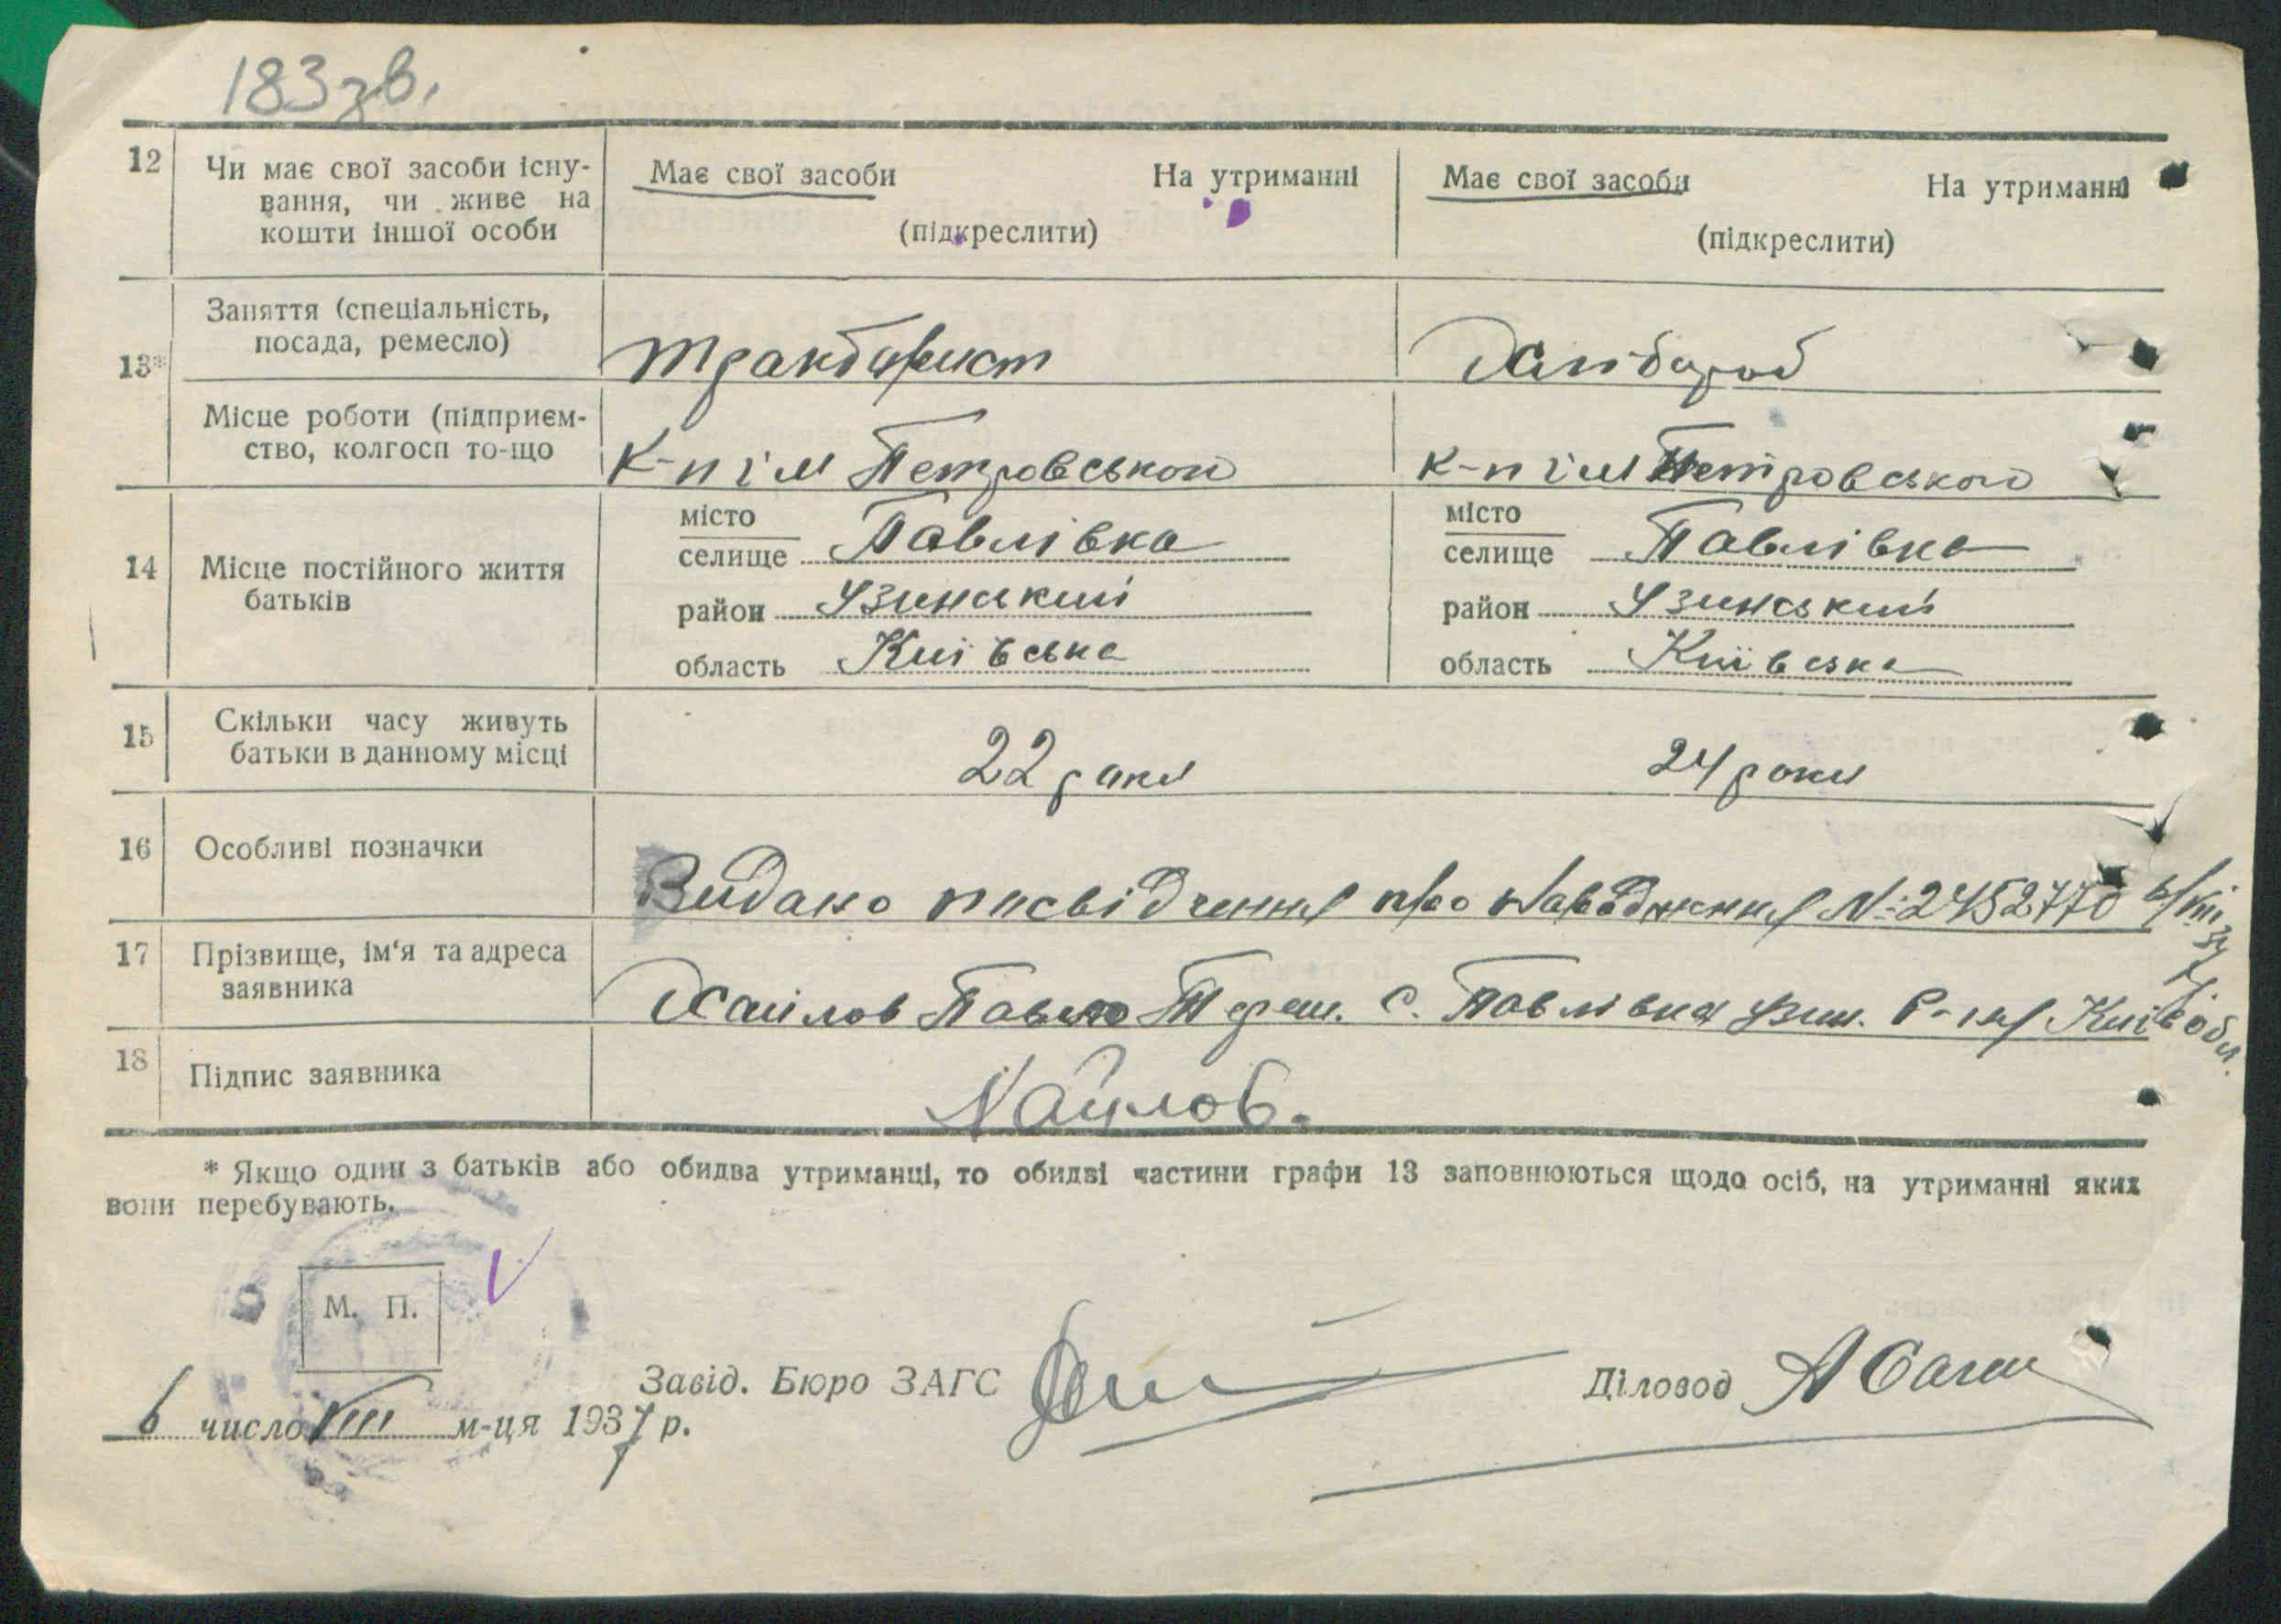 183зв.
12 Чи має свої засоби існу- Має свої засоби На утриманні Має свої засоби На утриманні
вання, чи живе на
кошти іншої особи (підкреслити) (підкреслити)
Заняття (спеціальність,
посада, ремесло) тракторист Хлібороб
13*
Місце роботи (підприєм-
ство, колгосп то-що к-п ім Петровського к-п ім Петровського
14 Місце постійного життя
батьків
місто
селище Павлівка
район Узинський
область Київська
місто
селище Павлівка
район Узинський
область Київська
15 Скільки часу живуть
батьки в данному місці 22 роки 24 роки
16 Особливі позначки
Видано посвідчення про народження №2452770 6/VIII 37 р.
17 Прізвище, ім'я та адреса
заявника Хайлов Павло Тереш. с. Павлівка Узин. р-ну Київ обл.
18 Підпис заявника Хайлов.
* Якщо один з батьків або обидва утриманці, то обидві частини графи 13 заповнюються щодо осіб, на утриманні яких
вони перебувають.
М. П.
Завід. Бюро ЗАГС Діловод
6 число VIII м-ця 1937 р.